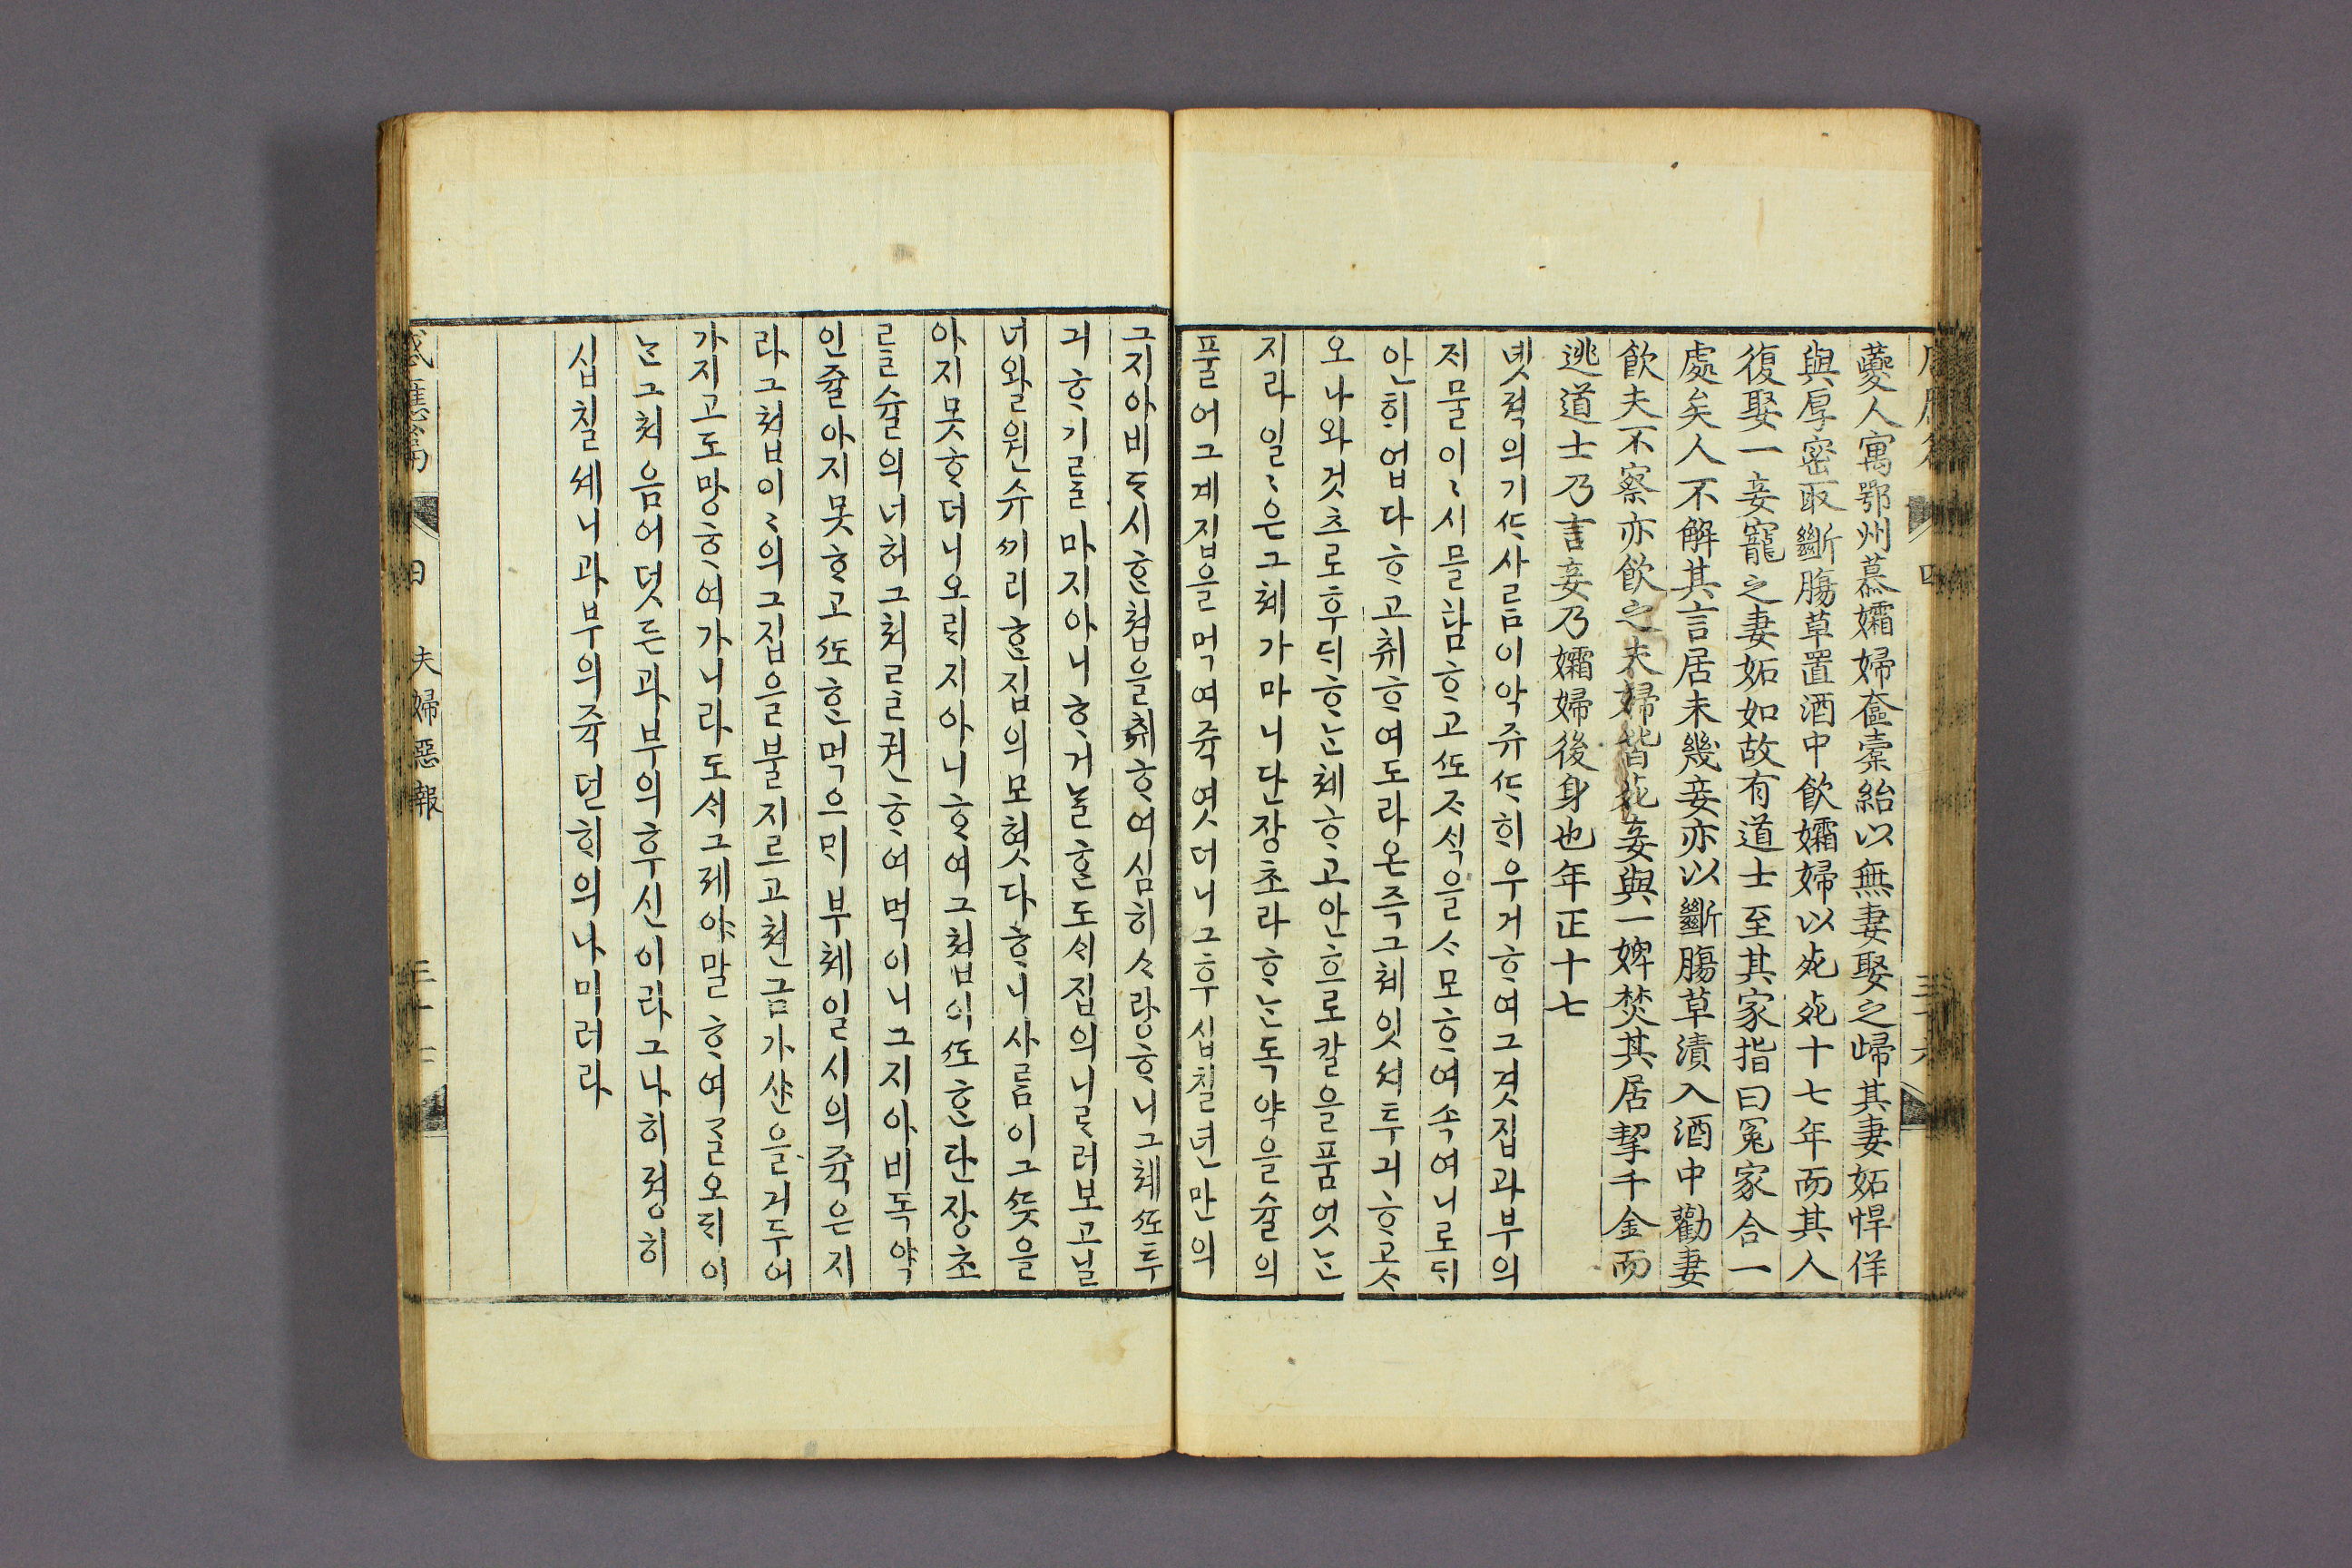 夔人寓鄂州慕孀婦奩橐紿以無妻娶之歸其妻妬悍佯
與厚密取斷膓草置酒中飮孀婦以死死十七年而其人
復娶一妾寵之妻妬如故有道士至其家指曰寃家合一
處矣人不解其言居未幾妾亦以斷膓草漬入酒中勸妻
飮夫不察亦飮之夫婦皆死妾與一婢焚其居挈千金而
逃道士乃言妾乃孀婦後身也年正十七
녯젹의기ᄯᅡ사ᄅᆞᆷ이악쥬ᄯᅡᄒᆡ우거ᄒᆞ여그겻집과부의
ᄌᆡ물이〻시믈ᄎᆞᆷᄒᆞ고ᄯᅩᄌᆞ식을ᄉᆞ모ᄒᆞ여속여니로ᄃᆡ
안ᄒᆡ업다ᄒᆞ고취ᄒᆞ여도라온즉그쳬잇셔투긔ᄒᆞ고ᄉᆞ
오나와것츠로후ᄃᆡᄒᆞᄂᆞᆫ쳬ᄒᆞ고안흐로칼을품엇ᄂᆞᆫ
지라일〻은그쳬가마니단장초라ᄒᆞᄂᆞᆫ독약을술의
풀어그계집을먹여쥭엿더니그후십칠년만의
그지아비ᄃᆞ시ᄒᆞᆫ쳡을취ᄒᆞ여심히ᄉᆞ랑ᄒᆞ니그쳬ᄯᅩ투
긔ᄒᆞ기ᄅᆞᆯ마지아니ᄒᆞ거ᄂᆞᆯᄒᆞᆫ도ᄉᆡ집의니ᄅᆞ러보고닐
너왈원슈ᄭᅵ리ᄒᆞᆫ집의모혓다ᄒᆞ니사ᄅᆞᆷ이그ᄯᅳᆺ을
아지못ᄒᆞ더니오ᄅᆡ지아니ᄒᆞ여그쳡이ᄯᅩᄒᆞᆫ단장초
ᄅᆞᆯ술의너허그쳐ᄅᆞᆯ권ᄒᆞ여먹이니그지아비독약
인쥴아지못ᄒᆞ고ᄯᅩᄒᆞᆫ먹으ᄆᆡ부쳬일시의쥭은지
라그쳡이〻의그집을불지르고쳔금가산을거두어
가지고도망ᄒᆞ여가니라도ᄉᆡ그제야말ᄒᆞ여ᄀᆞᆯ오ᄃᆡ이
ᄂᆞᆫ그처음어덧든과부의후신이라그나히졍히
십칠셰니과부의쥭던ᄒᆡ의나미러라
感應篇
夫婦惡報